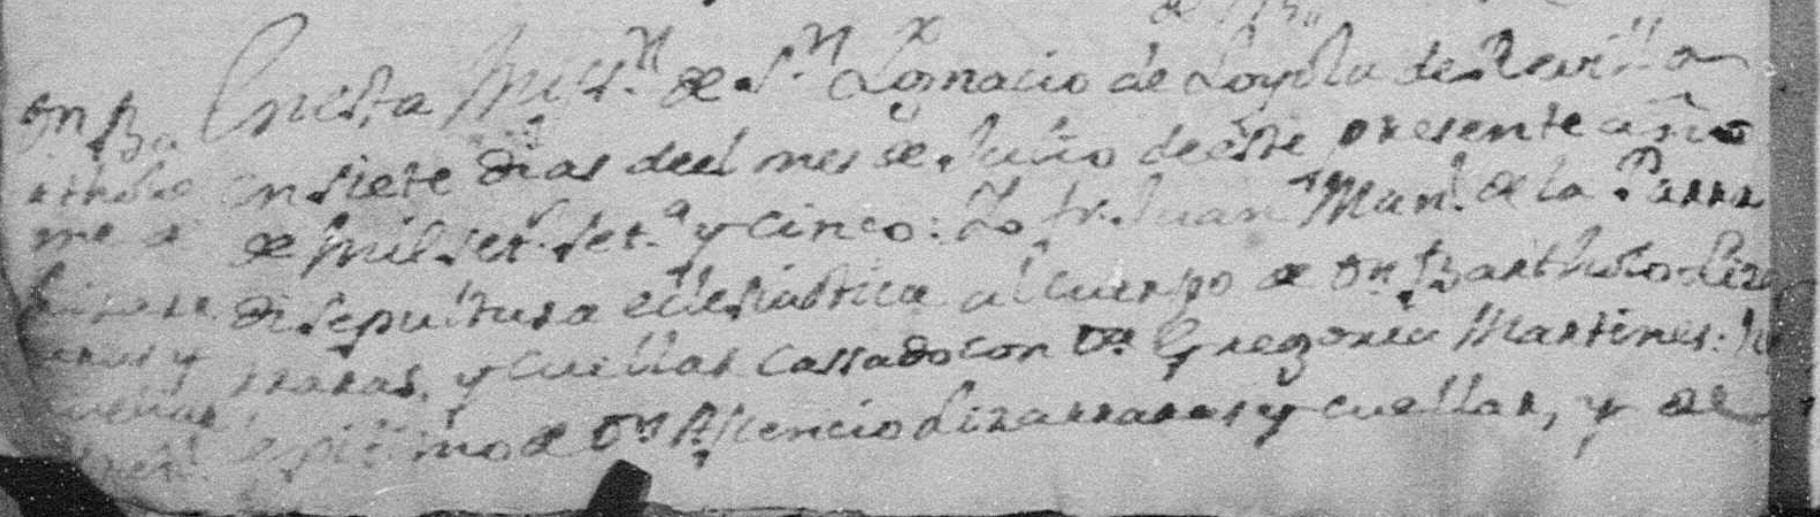 de
Dn Ba
rthole
me
y
En esta Miss.n de S.n Ygnacio de Loyola de Revilla
en siete dias deel mes de Julio de este presente año
de mil set. set.a y cinco: Yo fr. Juan Man.l de la Parra
di sepultura eclesiastica al cuerpo de Dn Bartholo Liza
rraras, y cuellar cassado con Da Gregoria Martines: hi
legitimo de Dn Assencio Lizarraras y cuellar, y de